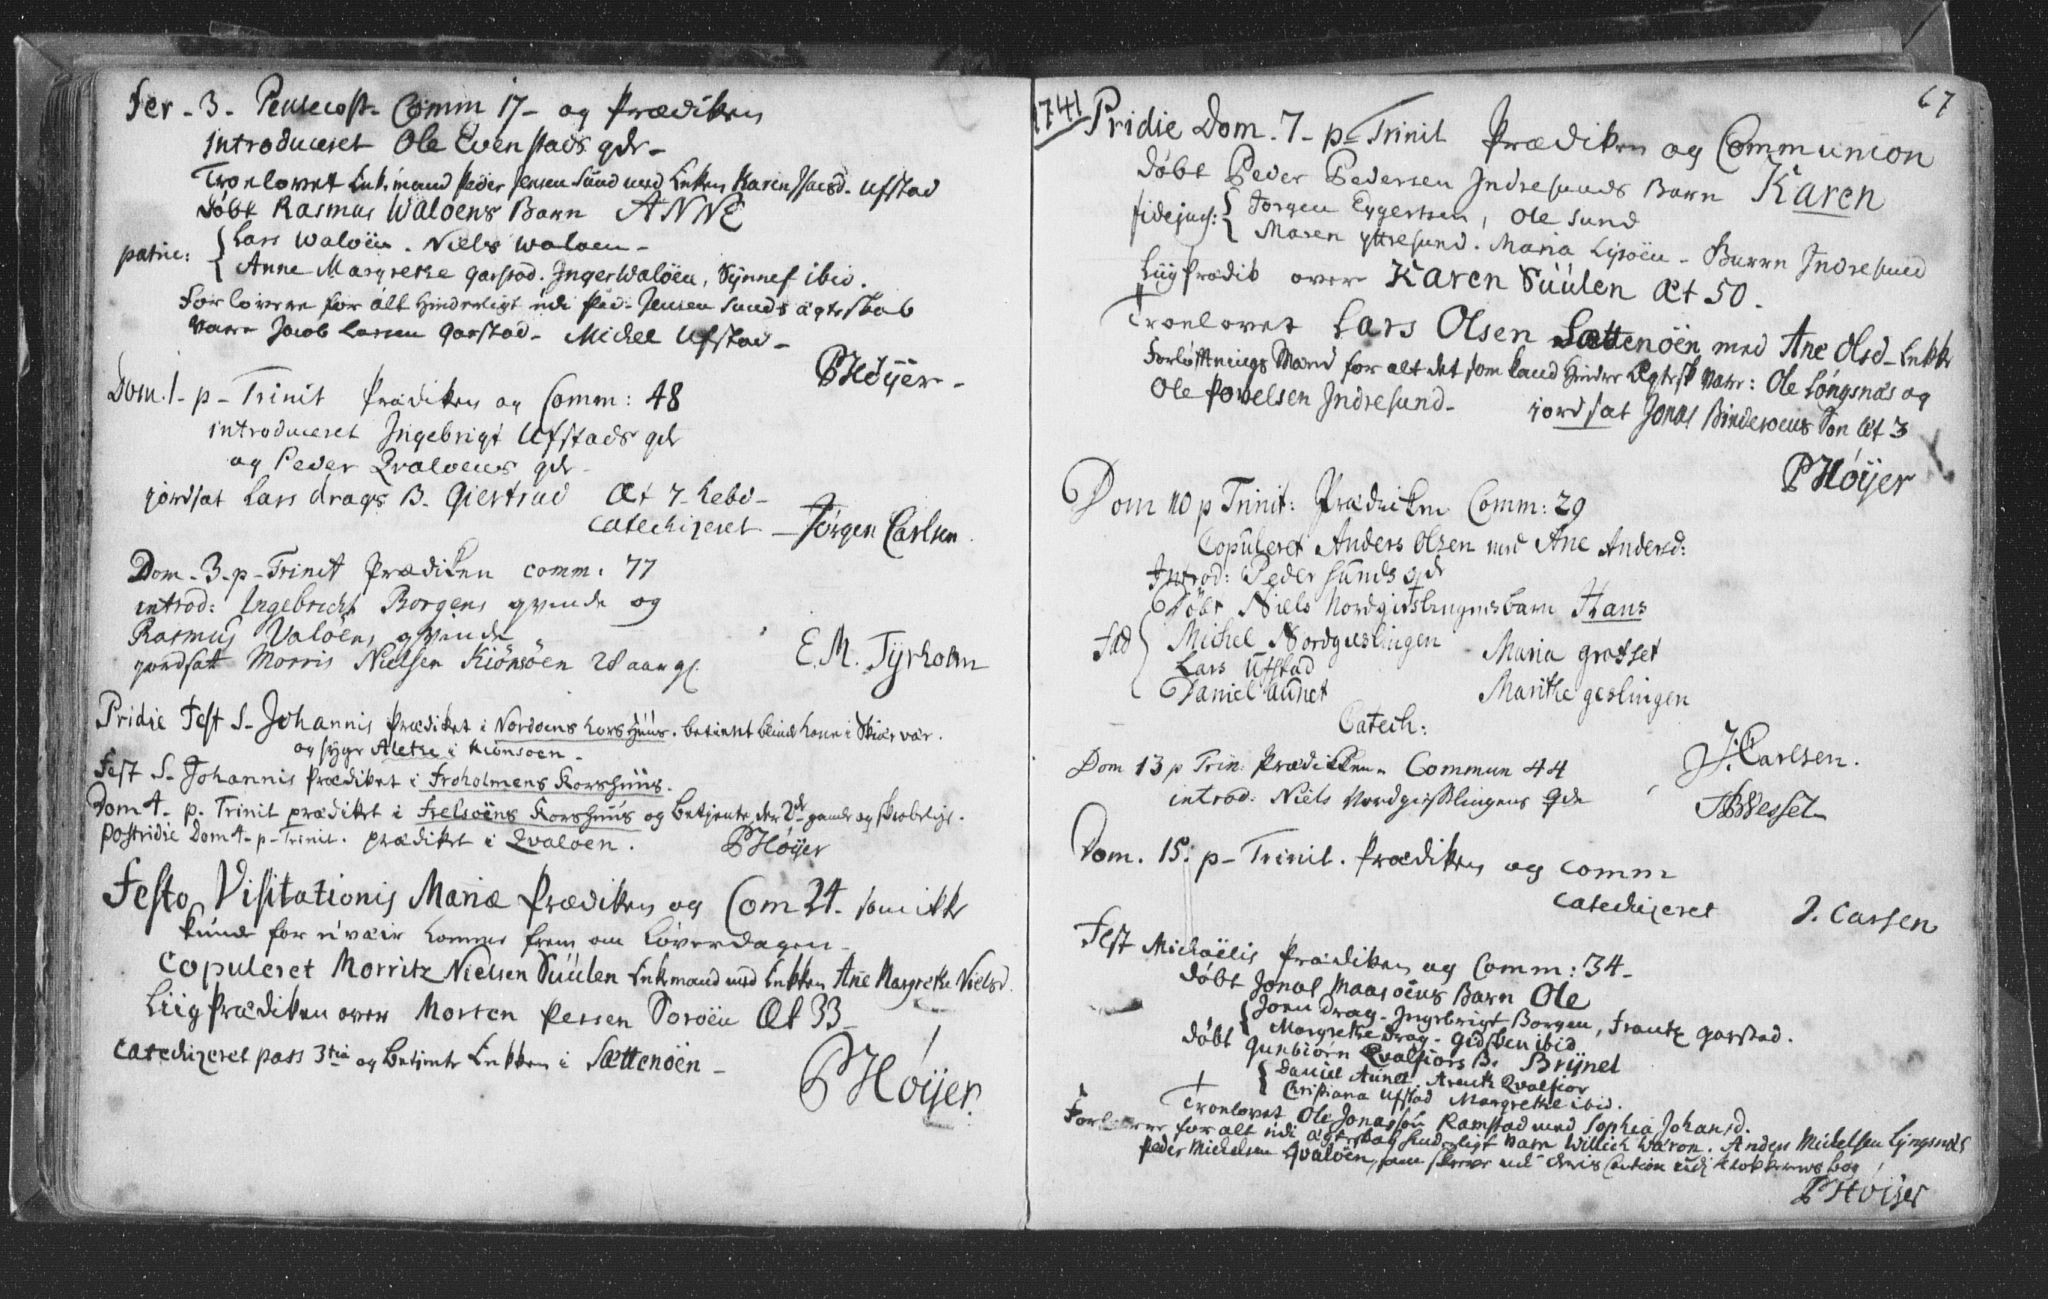 Fer - 3 - Pentecost - Comm 17 - og Prædiken
introduceret Ole Evenstads qdr -
Troelovet Enkemand Peder Jensen Sund med Enken Karen Isacsd. Ufstad
døbt Rasmus Waloens Barn ANNE
patrin: Lars Waloën. Niels Waloen -
Anne Margrethe Garstad. Inger Waløen, Synnef ibid.
Forlovere for alt Hinderligt udi Ped. Jensen Sunds ægteskab
vare Jacob Larsen Garstad - Michel Ufstad -
PHøÿer -
Dom. 1 - p - Trinit Prædiken og Comm: 48
introduceret Ingebrigt Ufstads qdr
og Peder Qvaloens qdr -
jordsat Lars Drags B. Giertrud Æt 7. hebd -
Catechizeret - Jørgen Carlsen.
Dom - 3 - p - Trinit Prædiken comm: 77
introd: Ingebricht Borgens qvinde og
Rasmus Valöens qvinde
jordsatt Morris Nielsen Kiönsöen 28 aar gl.
E. M. Tÿrholm
Pridie Fest S - Johannis Prædiket i Nordoens Korshuus. betient blind kone i Skiær vær.
og syge Alethe i Kionsoen -
Fest S - Johannis Prædiket i Froholmens Korshuus.
Dom 4 - p. Trinit prædiket i Frelsoens Korshuus og betjente der 2de gamle og skrobelige.
postridie Dom 4 - p - Trinit. prædiket i Qvaloen.
PHøÿer
Festo Visitationis Mariæ Prædiken og Com 24. som ikke
kunde for uvæir komme frem om Løverdagen -
Copuleret Morritz Nielsen Suulen Enkemand med Enken Ane Margrethe Nielsd.
Liig Prædiken over Morten Persen Soroën Æt 33
Catechizeret pass 3tia og betjente Enken i Sættenöen -
PHöijer.
1741 67
Pridie Dom. 7 - p - Trinit Prædiken og Communion
døbt Peder Pedersen Indresunds Barn Karen
fidejuss: Jorgen Eggertsen, Ole Sund
Maren Yttresund. Maria Lysöen - Barrn Indresund
Liigprædik over Karen Suulen Æt 50.
Troelovet Lars Olsen Sættenöen med Ane Olsd - Enke
Forløftnings Mænd for alt det som kand Hindre Ægtesk vare: Ole Löngsnäs og
Ole Povelsen Indresund - jordsat Jonas Binderoens Son Æt 3
PHöÿer
Dom 10 p Trinit: Prædicken Comm: 29
Copuleret Anders Olsen med Ane Andersd:
Introd: Peder Sunds qde
Døbt Niels Nordgieslingens barn Hans
Fad Michel Nordgieslingen Maria grotset
Lars Ufstad
Daniel Aunet Marithe geslingen
Catech:
J: Carlsen.
Dom 13 p Trin: Prædicken - Commun 44
introd: Niels Nordgieslingens Qde
Dom. 15: p - Trinit. Prædiken og comm
catechizeret J. Carlsen
Fest Michaëlis Prædiken og Comm: 34 -
døbt Jonas Maasöens Barn Ole
Joen Drag - Ingebrigt Borgen, Frantz Garstad.
Margrethe Drag - Gidsken ibid
døbt Gunbiörn Qvalfiors B. Brÿnel
Daniel Aunet. Arent Qvalfior
Christiana Ufstad Margrethe ibid.
Troelovet Ole Jonassøn Ramstad med Sophia Johansd.
Forlovere for alt udi ægteskab hinderligt vare Willich Wæron. Anders Michelsen Lyngsnæs
Peder Michelsen Qvaloen, som skrev
PHöÿer